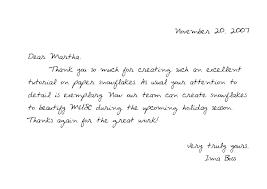 November 20, 2007
Dear Martha,
Thank you so much for creating such an excellent
tutorial on paper snowflakes. As usual your attention to
detail is exemplary. Now our team can create snowflakes
to beautify WUBC during the upcoming holiday season.
Thanks again for the great work!
Very truly yours,
Irma Boss